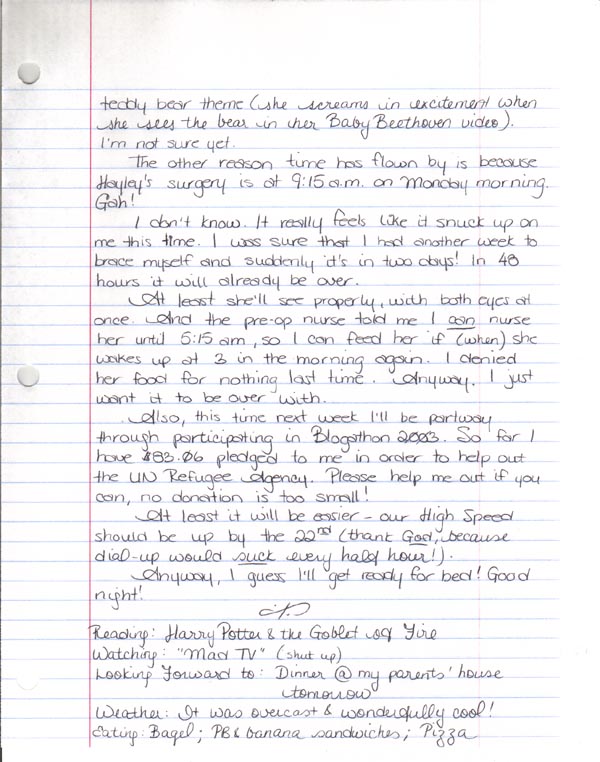 teddy bear theme (she screams in excitement when
she sees the bear in her Baby Beethoven video).
I'm not sure yet.
The other reason time has flown by is because
Hayley's surgery is at 9:15 a.m. on Monday morning.
Gah!
I don't know. It really feels like it snuck up on
me this time. I was sure that I had another week to
brace myself and suddenly it's in two days! In 48
hours it will already be over.
At least she'll see properly, with both eyes at
once. And the pre-op nurse told me I can nurse
her until 5:15 am, so I can feed her if (when) she
wakes up at 3 in the morning again. I denied
her food for nothing last time. Anyway, I just
want it to be over with.
Also, this time next week I'll be partway
through participating in Blogathon 2003. So far I
have $83.06 pledged to me in order to help out
the UN Refugee Agency. Please help me out if you
can, no donation is too small!
At least it will be easier - our High Speed
should be up by the 22nd (thank God, because
dial-up would suck every half hour!).
Anyway, I guess I'll get ready for bed! Good
night!
Reading: Harry Potter & the Goblet of Fire
Watching: "Mad TV" (shut up)
Looking Forward to: Dinner @ my parents' house
tomorrow
Weather: It was overcast & wonderfully cool!
Eating: Bagel; PB & banana sandwiches; Pizza